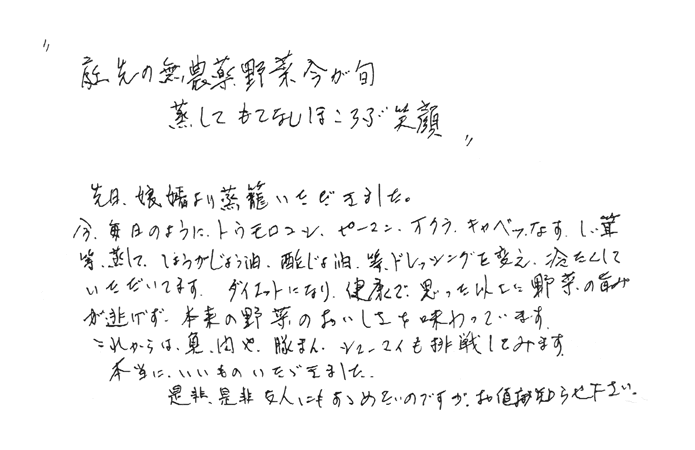 〃
庭先の無農薬野菜今が旬
蒸してもてなしほころぶ笑顔
〃
先日、娘婿より蒸籠いただきました。
今、毎日のように、トウモロコシ、ピーマン、オクラ、キャベツ、なす、しい茸
等、蒸して、しょうがじょう油、酢じょ油、等、ドレッシングを変え、冷たくして
いただいてます。ダイエットになり、健康で、思った以上に野菜の旨み
が逃げず、本来の野菜のおいしさを味わっています。
これからは、魚、肉や、豚まん、シューマイも挑戦してみます。
本当に、いいものいただきました。
是非、是非友人にもすすめたいのですが、お値段知らせ下さい。